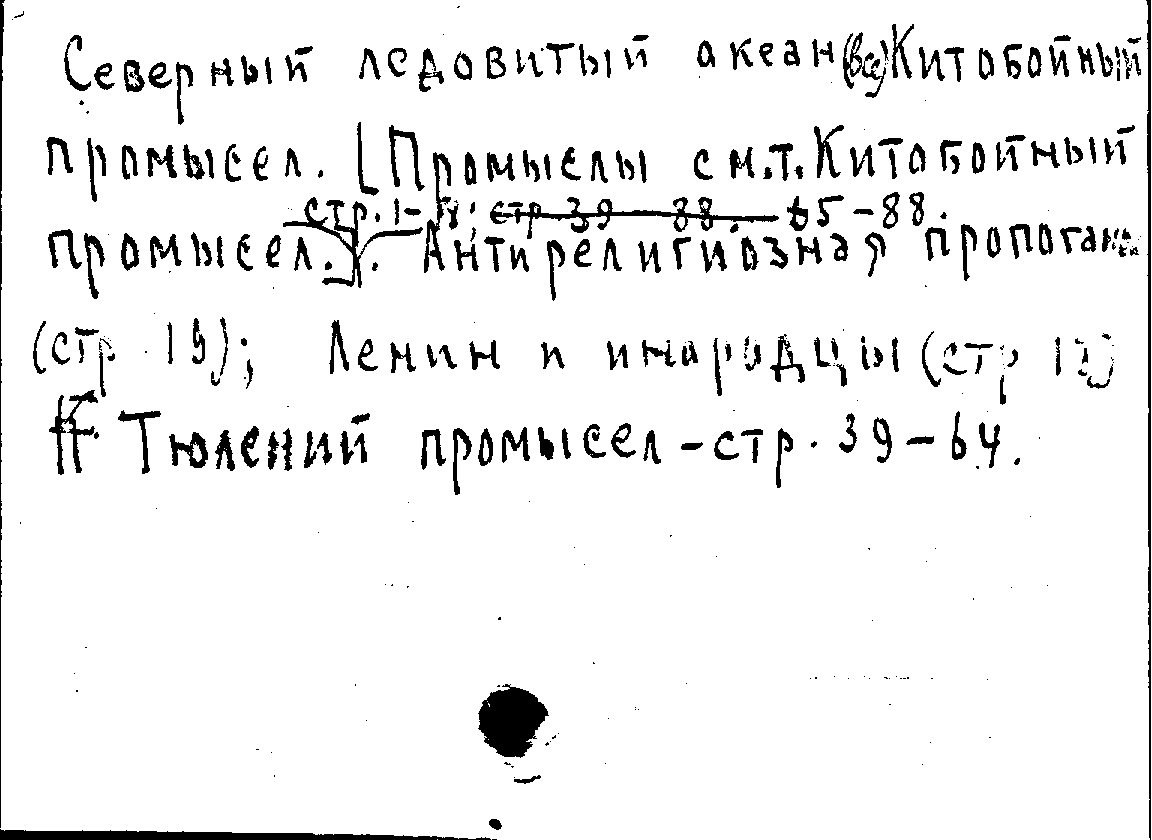 Северный ледовитый океан (все) Китобойный
промысел. [Промыслы см.т. Китобойный
стр. 1- ; стр 39 - 88. 65-88.
промысел.]. Антирелигиозная
(стр. 19); Ленин и инародцы (стр
Тюлений промысел - стр. 39-64.